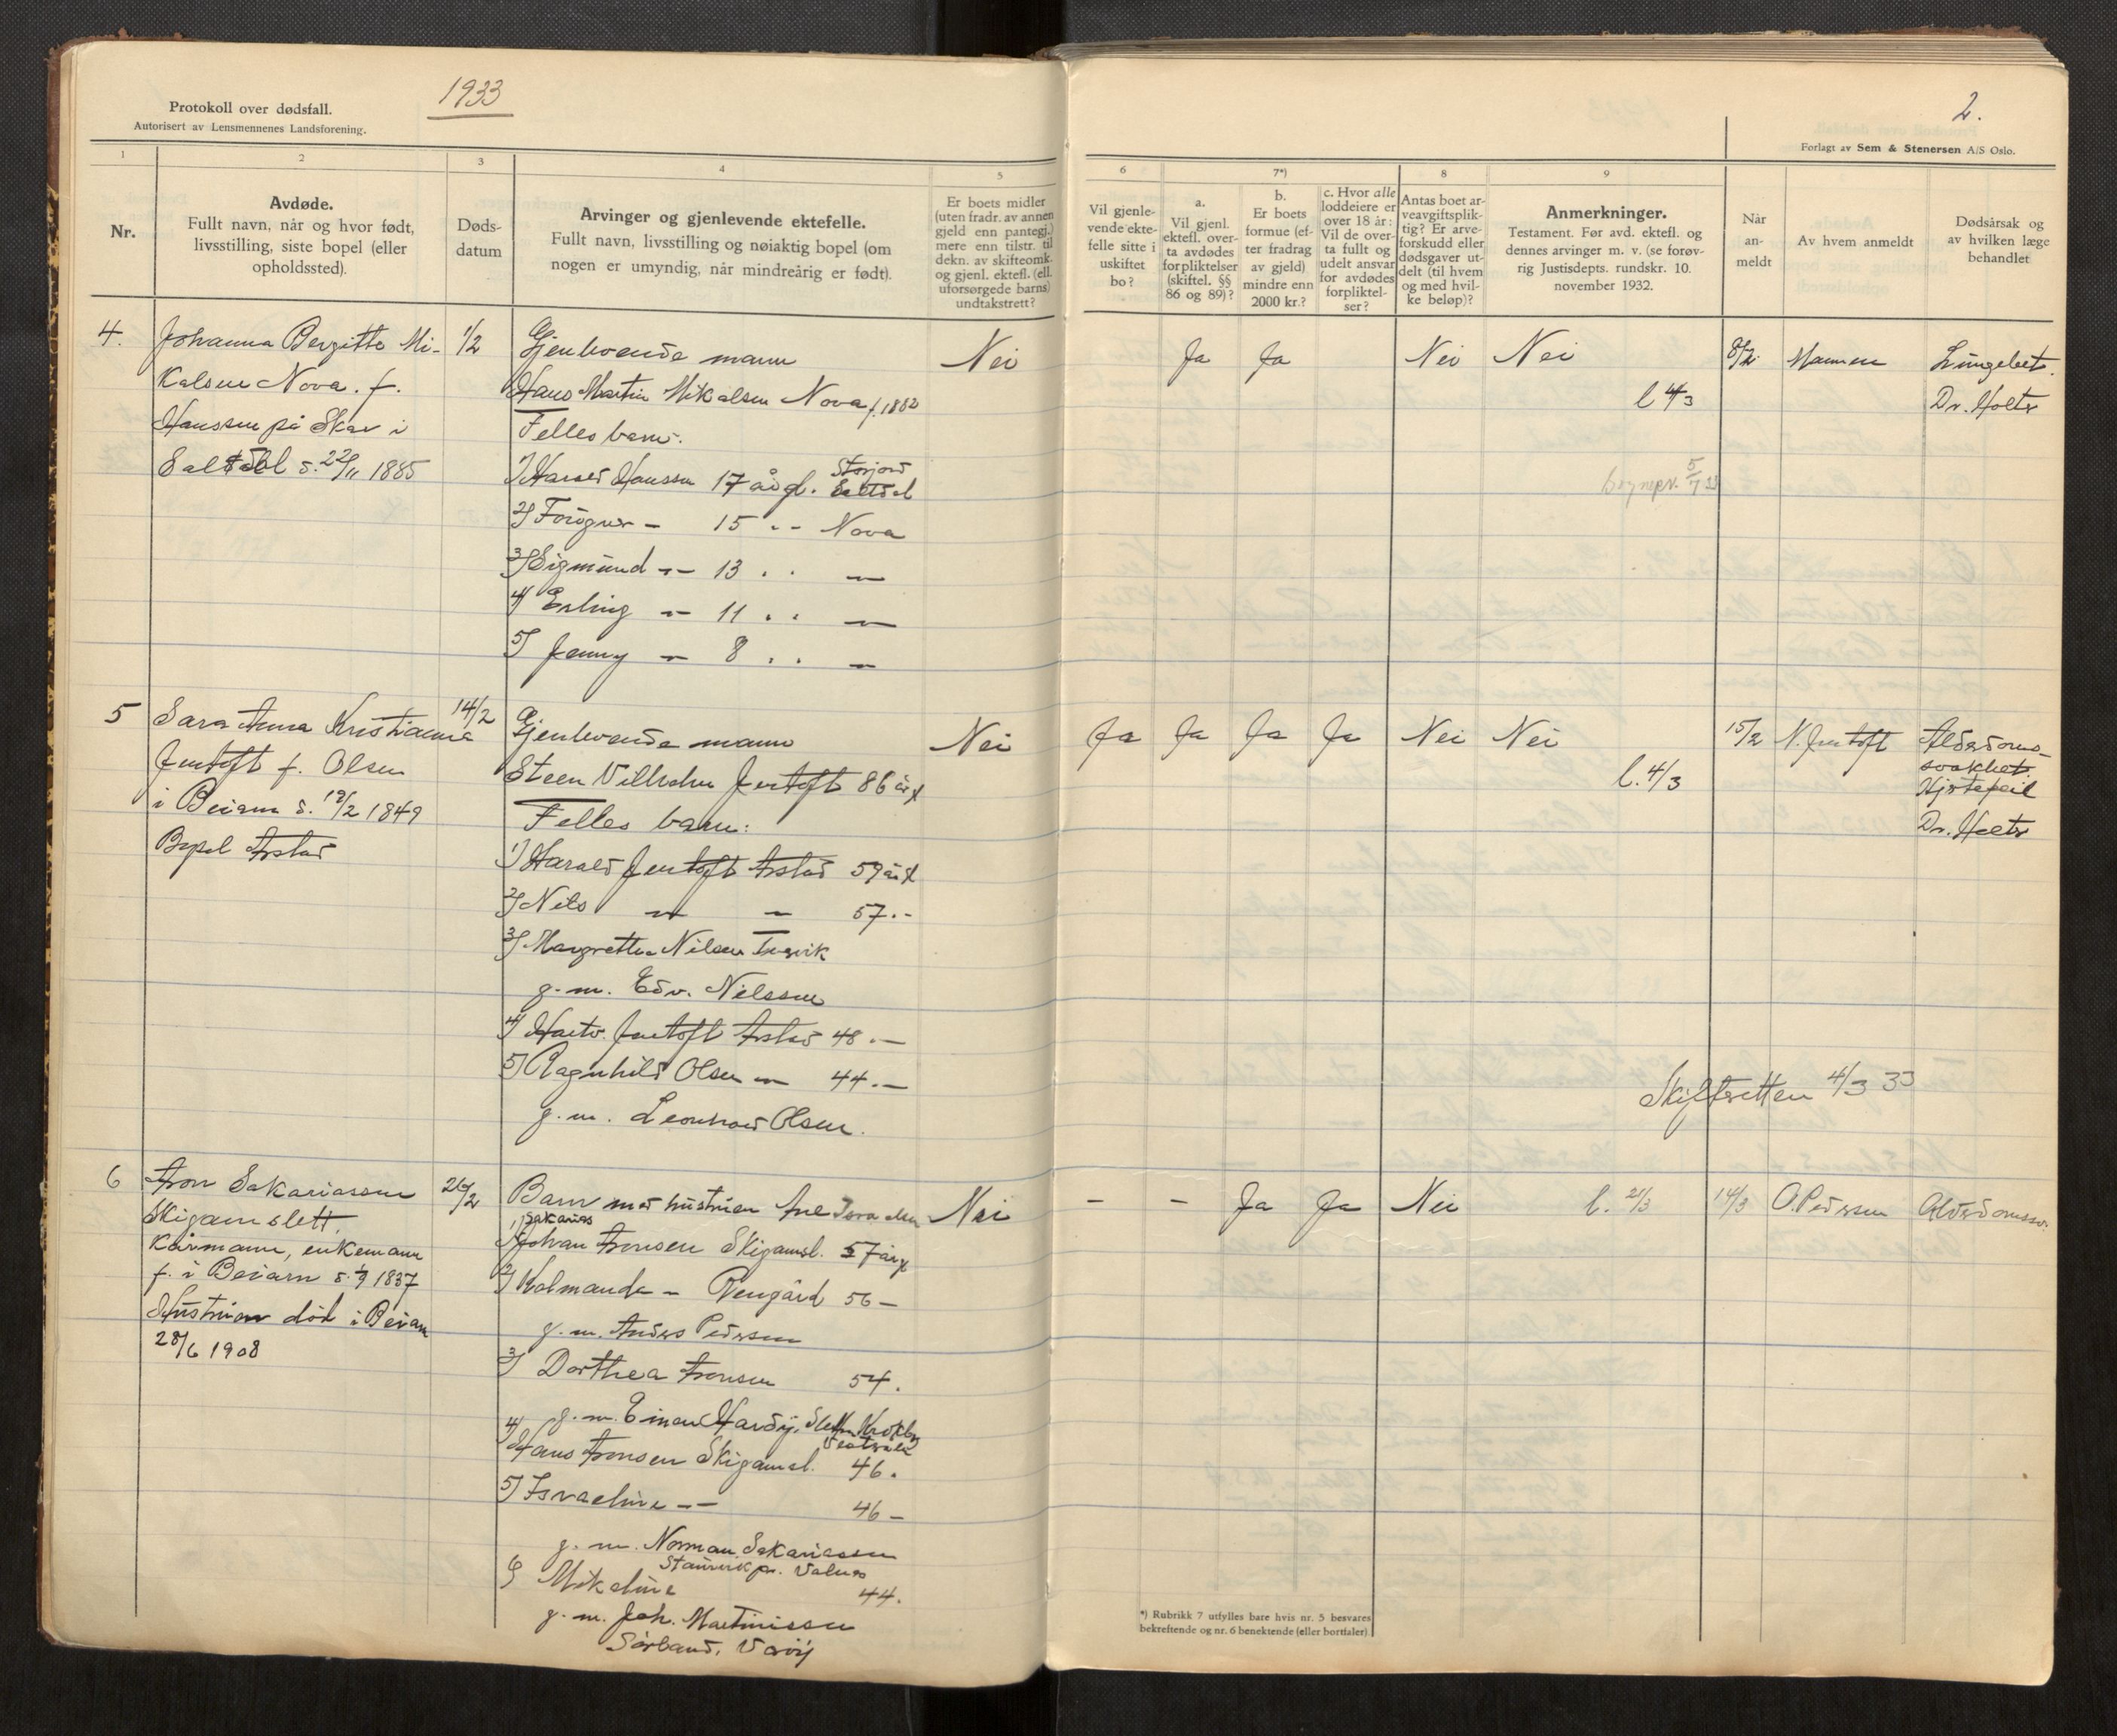 Protokoll over dødsfall.
Autorisert av Lensmennenes Landsforening.
1933
2.
Forlagt av Sem & Stenersen A/S Oslo.
1
2
3
4
5
6
7*)
8
9
Nr.
Avdøde.
Fullt navn, når og hvor født,
livsstilling, siste bopel (eller
opholdssted).
Døds-
datum
Arvinger og gjenlevende ektefelle.
Fullt navn, livsstilling og nøiaktig bopel (om
nogen er umyndig, når mindreårig er født).
Er boets midler
(uten fradr. av annen
gjeld enn pantegj.)
mere enn tilstr. til
dekn. av skifteomk.
og gjenl. ektefl. (ell.
uforsørgede barns)
undtakstrett?
Vil gjenle-
vende ekte-
felle sitte i
uskiftet
bo?
a.
Vil gjenl.
ektefl. over-
ta avdødes
forpliktelser
(skiftel. §§
86 og 89)?
b.
Er boets
formue (ef-
ter fradrag
av gjeld)
mindre enn
2000 kr.?
c. Hvor alle
loddeiere er
over 18 år:
Vil de over-
ta fullt og
udelt ansvar
for avdødes
forpliktel-
ser?
Antas boet ar-
veavgiftsplik-
tig? Er arve-
forskudd eller
dødsgaver ut-
delt (til hvem
og med hvil-
ke beløp)?
Anmerkninger.
Testament. Før avd. ektefl. og
dennes arvinger m. v. (se forøv-
rig Justisdepts. rundskr. 10.
november 1932.
Når
an-
meldt
Av hvem anmeldt
Dødsårsak og
av hvilken læge
behandlet
4.
Johanna Bergitte Mi-
kalsen Nova. f.
Hanssen på Skar i
Saltdal d. 22/11 1885
1/2
Gjenlevende mann
Hans Martin Mikalsen Nova f. 1882
Felles barn.
1) Harald Hanssen 17 år gl. Storjord
Saltdal
2) Torögver - 15 " - Nova
3) Sigmund - 13 " " -
4) Erling - 11 " " -
5) Jenny - 8 " " -
Nei
Ja Ja Nei Nei
l 4/3
5/7 33
8/2 Mannen
Lungebet.
Dr. Holte
5
Sara Anna Kristianna
Jentoft f. Olsen
i Beiarn d. 19/2 1849
Bopel Arstad
14/2
Gjenlevende mann
Steen Vilhelm Jentoft 86 år gl
Felles barn:
1) Harald Jentoft Arstad 59 år gl
2) Nils - - 57 . -
3) Margrethe Nilsen
g. m. Edv. Nilssen
4) Hartv. Jentoft Arstad 48 . -
5) Ragnhild Olsen - 44 . -
g. m. Leonhard Olsen.
Nei
Ja Ja Ja Ja Nei Nei
l. 4/3
15/2 N. Jentoft
Alderdoms-
svakhet
Hjertefeil
Dr. Holte
Skifteretten 4/3 33
6
Aron Sakariassen
Skigamslett.
Kårmann, enkemann
f. i Beiarn d. 1/9 1837
Hustruen död i Beiarn
28/6 1908
26/2
Barn med hustruen Ane Israelsen
Sakarias
1) Johan Aronsen Skigamsl. 57 år gl
2) Kolmanda - Vengård 56 -
g. m. Anders Pedersen
3) Dorthea Aronsen 54.
g. m. Einar Hardij.
4) Hans Aronsen Skigamsl. 46.
5) Israeline - - 46 -
g. m. Norman Sakariassen
Staurvik pr. Valnes
6) Mikaline 44.
g. m. Joh. Martinissen
Sörland, Väröy
Nei
- - Ja Ja Nei
l. 21/3
14/3 O. Pedersen
Alderdomssv.
*) Rubrikk 7 utfylles bare hvis nr. 5 besvares
bekreftende og nr. 6 benektende (eller bortfaler)